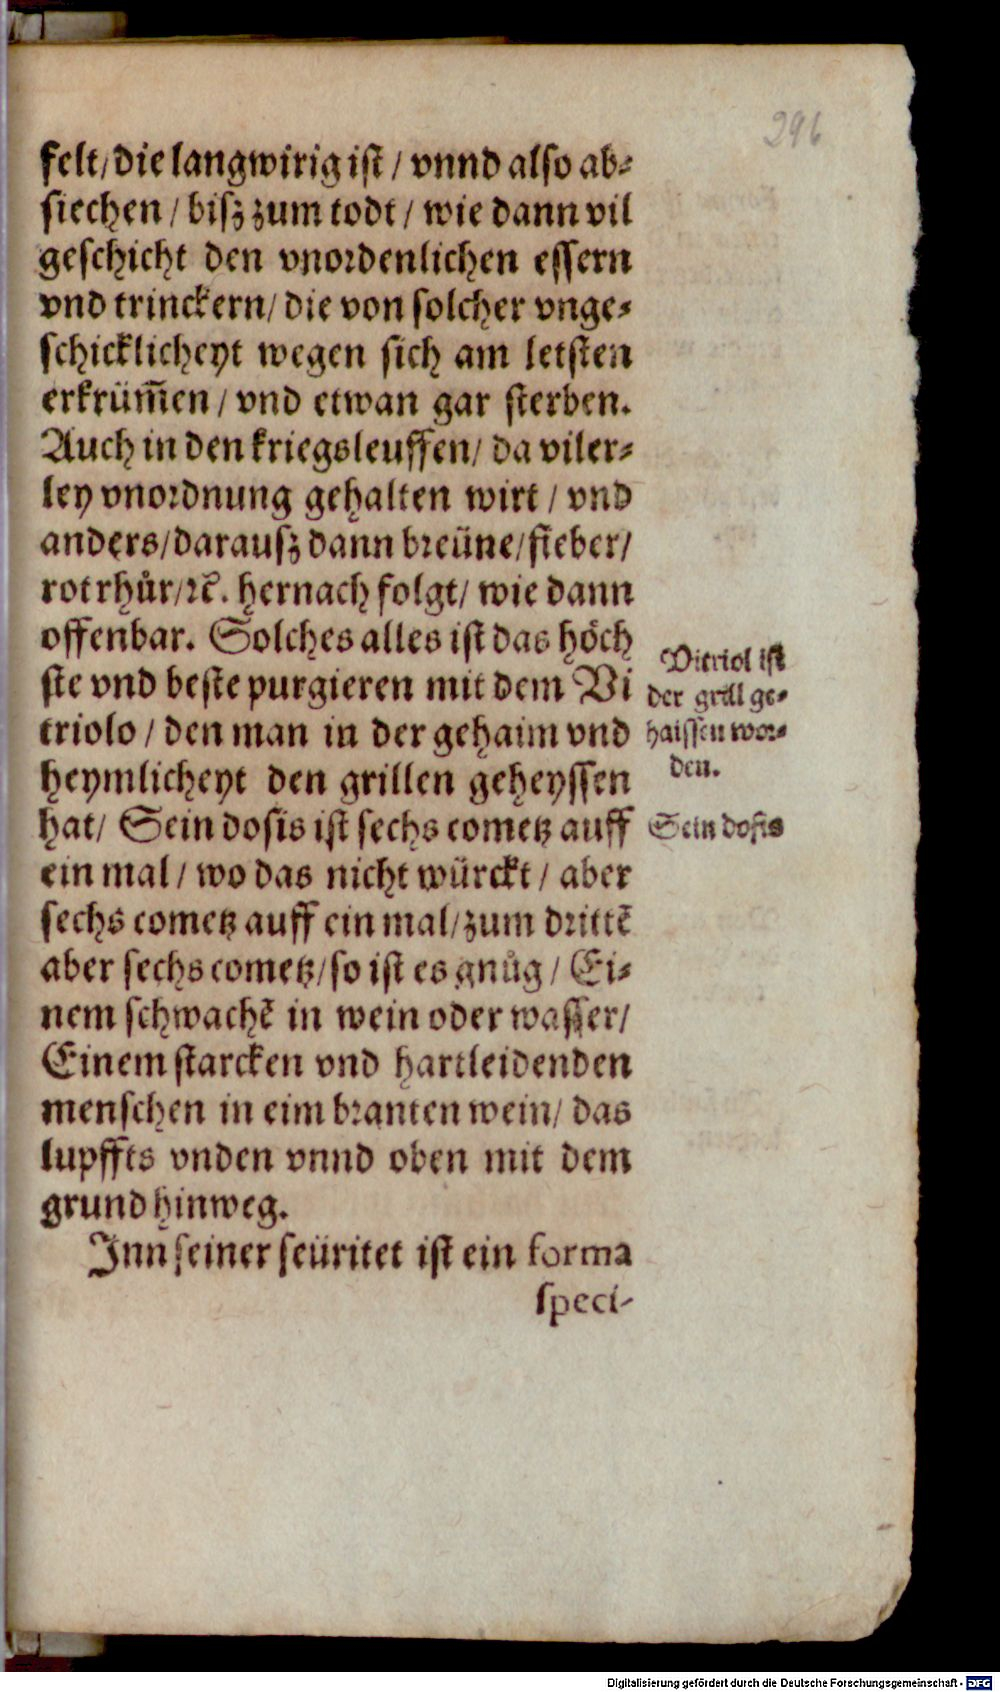 296
felt/ die langwirig ist / vnnd also ab-
siechen / bisz zum todt / wie dann vil
geschicht den vnordenlichen essern
vnd trinckern/ die von solcher vnge-
schicklicheyt wegen sich am letsten
erkrüm̃en / vnd etwan gar sterben.
Auch in den kriegsleuffen/ da viler-
ley vnordnung gehalten wirt / vnd
anders/ darausz dann breüne/ fieber/
rot rhůr/ ꝛc̃. hernach folgt/ wie dann
offenbar. Solches alles ist das höch
ste vnd beste purgieren mit dem Vi
triolo / den man in der gehaim vnd
heymlicheyt den grillen geheyssen
hat/ Sein dosis ist sechs cometz auff
ein mal / wo das nicht würckt / aber
sechs cometz auff ein mal/ zum drittẽ
aber sechs cometz/ so ist es gnůg / Ei-
nem schwachẽ in wein oder wasser/
Einem starcken vnd hartleidenden
menschen in eim branten wein/ das
lupffts vnden vnnd oben mit dem
grund hinweg.
Inn seiner seüritet ist ein forma
speci-
Vitriol ist
der grill ge-
haissen wor-
den.
Sein dosis
Digitalisierung gefördert durch die Deutsche Forschungsgemeinschaft - DFG